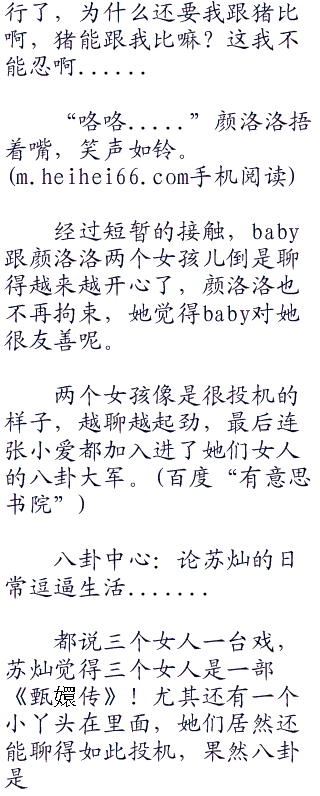 行了，为什么还要我跟猪比
啊，猪能跟我比嘛？这我不
能忍啊......
“咯咯.....”颜洛洛捂
着嘴，笑声如铃。
(m.heihei66.com手机阅读)
经过短暂的接触，baby
跟颜洛洛两个女孩儿倒是聊
得越来越开心了，颜洛洛也
不再拘束，她觉得baby对她
很友善呢。
两个女孩像是很投机的
样子，越聊越起劲，最后连
张小爱都加入进了她们女人
的八卦大军。(百度“有意思
书院”)
八卦中心：论苏灿的日
常逗逼生活.......
都说三个女人一台戏，
苏灿觉得三个女人是一部
《甄嬛传》！尤其还有一个
小丫头在里面，她们居然还
能聊得如此投机，果然八卦
是